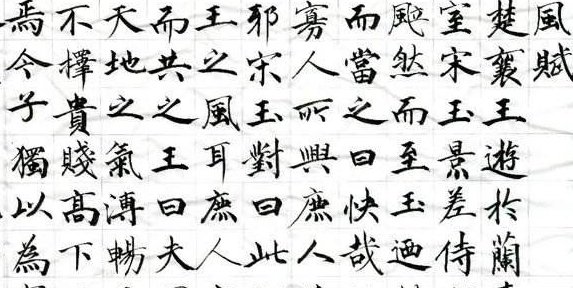 風賦
楚襄王遊於蘭
室宋玉景差侍
颯然而至玉迺
而當之曰快哉
寡人所與庶人
邪宋玉對曰此
王之風耳庶人
而共之王曰夫
天地之氣溥暢
不擇貴賤高下
焉今子獨以為